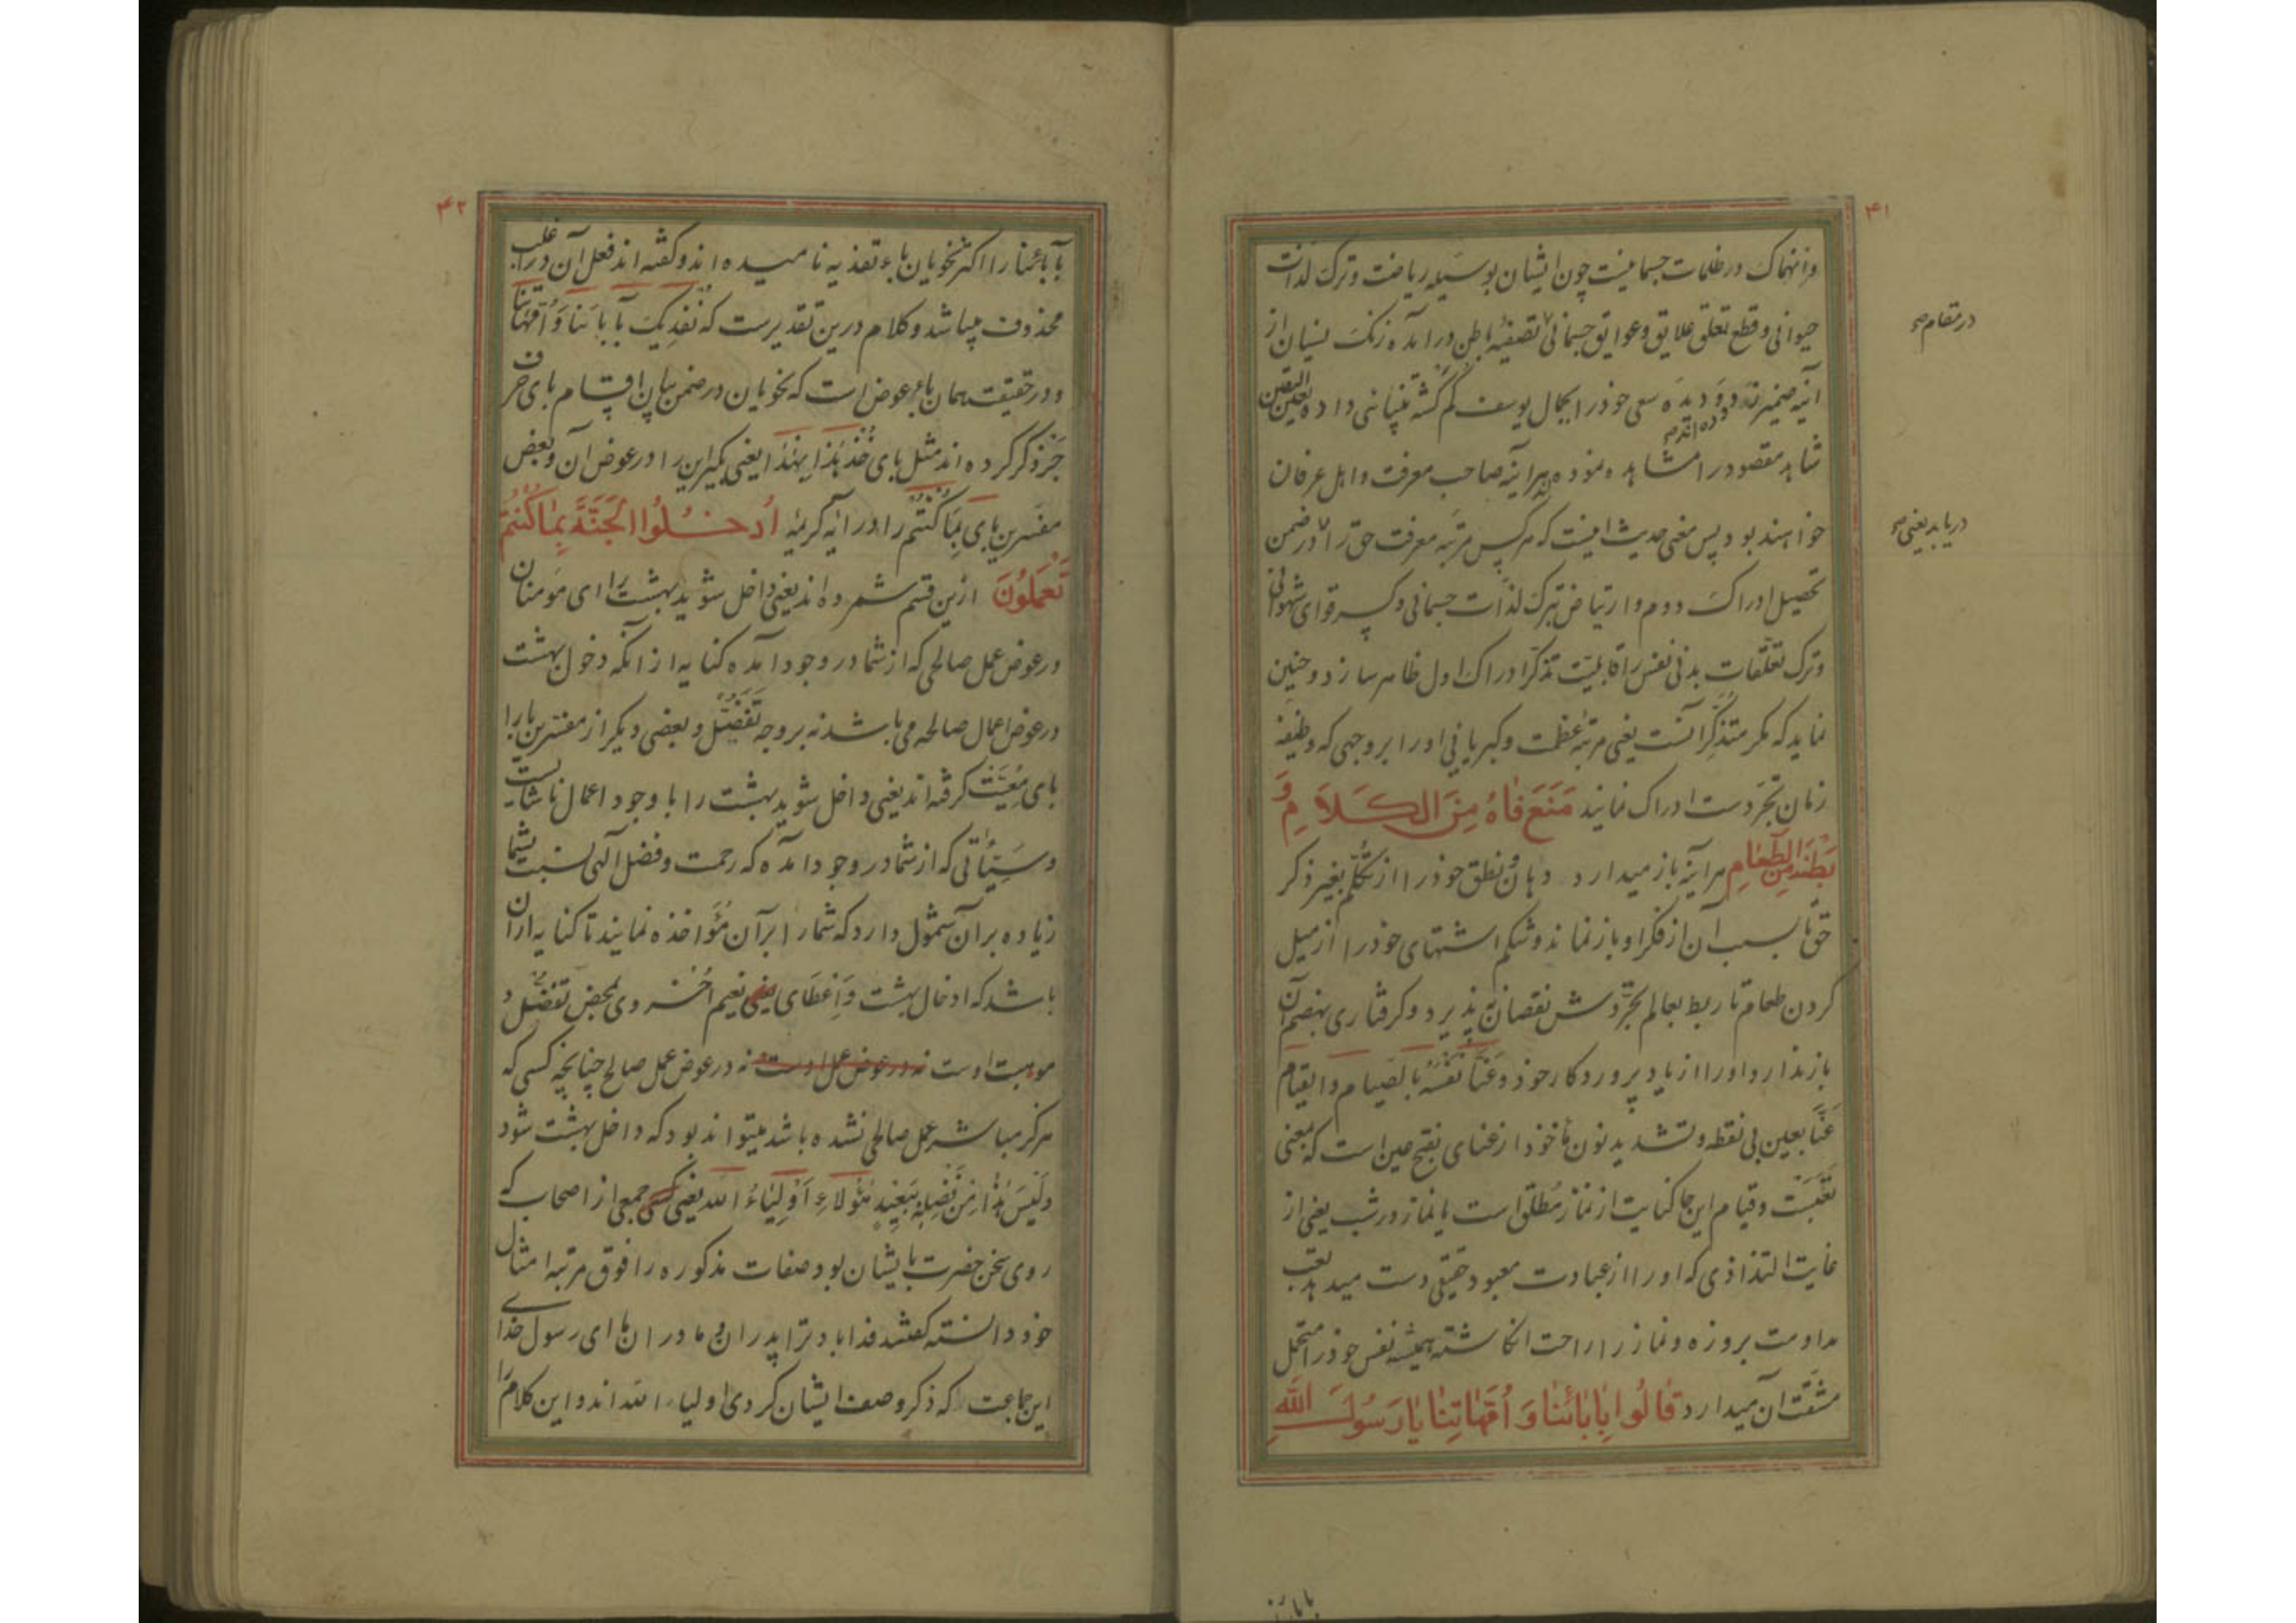 ۴۱
وانهماک در ظلمات جسمانیت چون ایشان بوسیله ریاضت وترک لذات
حیوانی وقطع تعلق علایق وعوایق جسمانی تصفیه باطن درآمده زنک نسیان از
در مقام صح
آئینه ضمیر دیده سعی خود را بجمال یوسف کم کشته بینائی داده بعین الیقین
شاهد مقصود را مشاهده نموده هرآینه صاحب معرفت واهل عرفان
خواهند بود پس معنی حدیث اینست که هر کس مرتبه معرفت حق را در ضمن
دریابد یعنی صح
تحصیل ادراک دوم وارتیاض بترک لذات جسمانی وکسر قوای شهوانی
وترک تعلقات بدنی نفس را قابلیت تذکر ادراک اول ظاهر سازد وچنین
نماید که مکر متذکر آنست یعنی مرتبه عظمت وکبریائی او را بر وجهی که وظیفه
زمان تجرد است ادراک نمایند مَنَعَ فَاهُ مِنَ الكَلَامِ وَ
بَطْنَهُ مِنَ الطَّعَامِ هرآینه باز میدارد دهان ونطق خود را از تکلم بغیر ذکر
حق تا بسبب آن از فکر او باز نماند وشکم اشتهای خود را از میل
کردن طعام تا ربط بعالم تجردش نقصان نپذیرد وکرفتاری بهضم آن
باز ندارد او را از یاد پروردکار خود وَعَنَّا نَفْسَهُ بالصیام والقیام
عَنَّا بعین بی نقطه وتشدید نون مأخوذ از عنای بفتح عین است که بمعنی
تَعَبَست وقیام این جا کنایت از نماز مُطلق است یا نماز در شب یعنی از
غایت التذاذی که او را از عبادت معبود حقیقی دست میدهد تعب
مداومت بروزه ونماز را راحت انکاشته همیشه نفس خود را متحمل
مشقت آن میدارد قالُوا بِآبَائِنَا وَاُمَّهَاتِنَا يَا رَسُولَ اللهِ
۴۲
بآبائنا را اکثر نحویان باء تفدیه نامیده اند وکفته اند فعل آن در اغلب
محذوف میباشد وکلام درین تقدیرست که نُفَدِیکَ بآبائنا وَاُمَّهاتنا
ودر حقیقت همان باء عوض است که نحویان در ضمن بیان اقسام بای حرف
جَرّ ذکر کرده اند مثل بای خُذ هٰذا بِهٰذا یعنی بکیر این را در عوض آن وبعض
مفسرین بای بِمَا كُنْتُم را در آیه کریمه اُدْخُلُوا الْجَنَّةَ بِمَا كُنْتُمْ
تَعْمَلُونَ ازین قسم شمرده اند یعنی داخل شوید بهشت را ای مومنان
در عوض عمل صالحی که از شما در وجود آمده کنایه از آنکه دخول بهشت
در عوض اعمال صالحه می باشد نه بر وجه تَفَضُّل وبعضی دیکر از مفسرین با را
بای مَعِیَّت کرفته اند یعنی داخل شوید بهشت را با وجود اعمال ناشایست
وسَیِّئاتی که از شما در وجود آمده که رحمت وفضل الهی نسبت بشما
زیاده بر آن شمول دارد که شما را بر آن مُؤاخذه نمایند تا کنایه از آن
باشد که ادخال بهشت وَاِعطای نعیم اُخروی بمحض تَفَضُّل و
موهبت اوست نه در عوض عمل اوست نه در عوض عمل صالح چنانچه کسی که
هرکز مباشر عمل صالحی نشده باشد میتواند بود که داخل بهشت شود
وَلَیسَ هٰذا مِن فَضلِهِ بِبَعِیدٍ هٰؤُلاءِ اَوْلِیَاءُ الله یعنی جمعی از اصحاب که
روی سخن حضرت بایشان بود صفات مذکوره را فوق مرتبه امثال
خود دانسته کفتند فدا باد ترا پدران و مادران ما ای رسول خدای
این جماعت که ذکر وصف ایشان کردی اولیاء الله اند واین کلام را